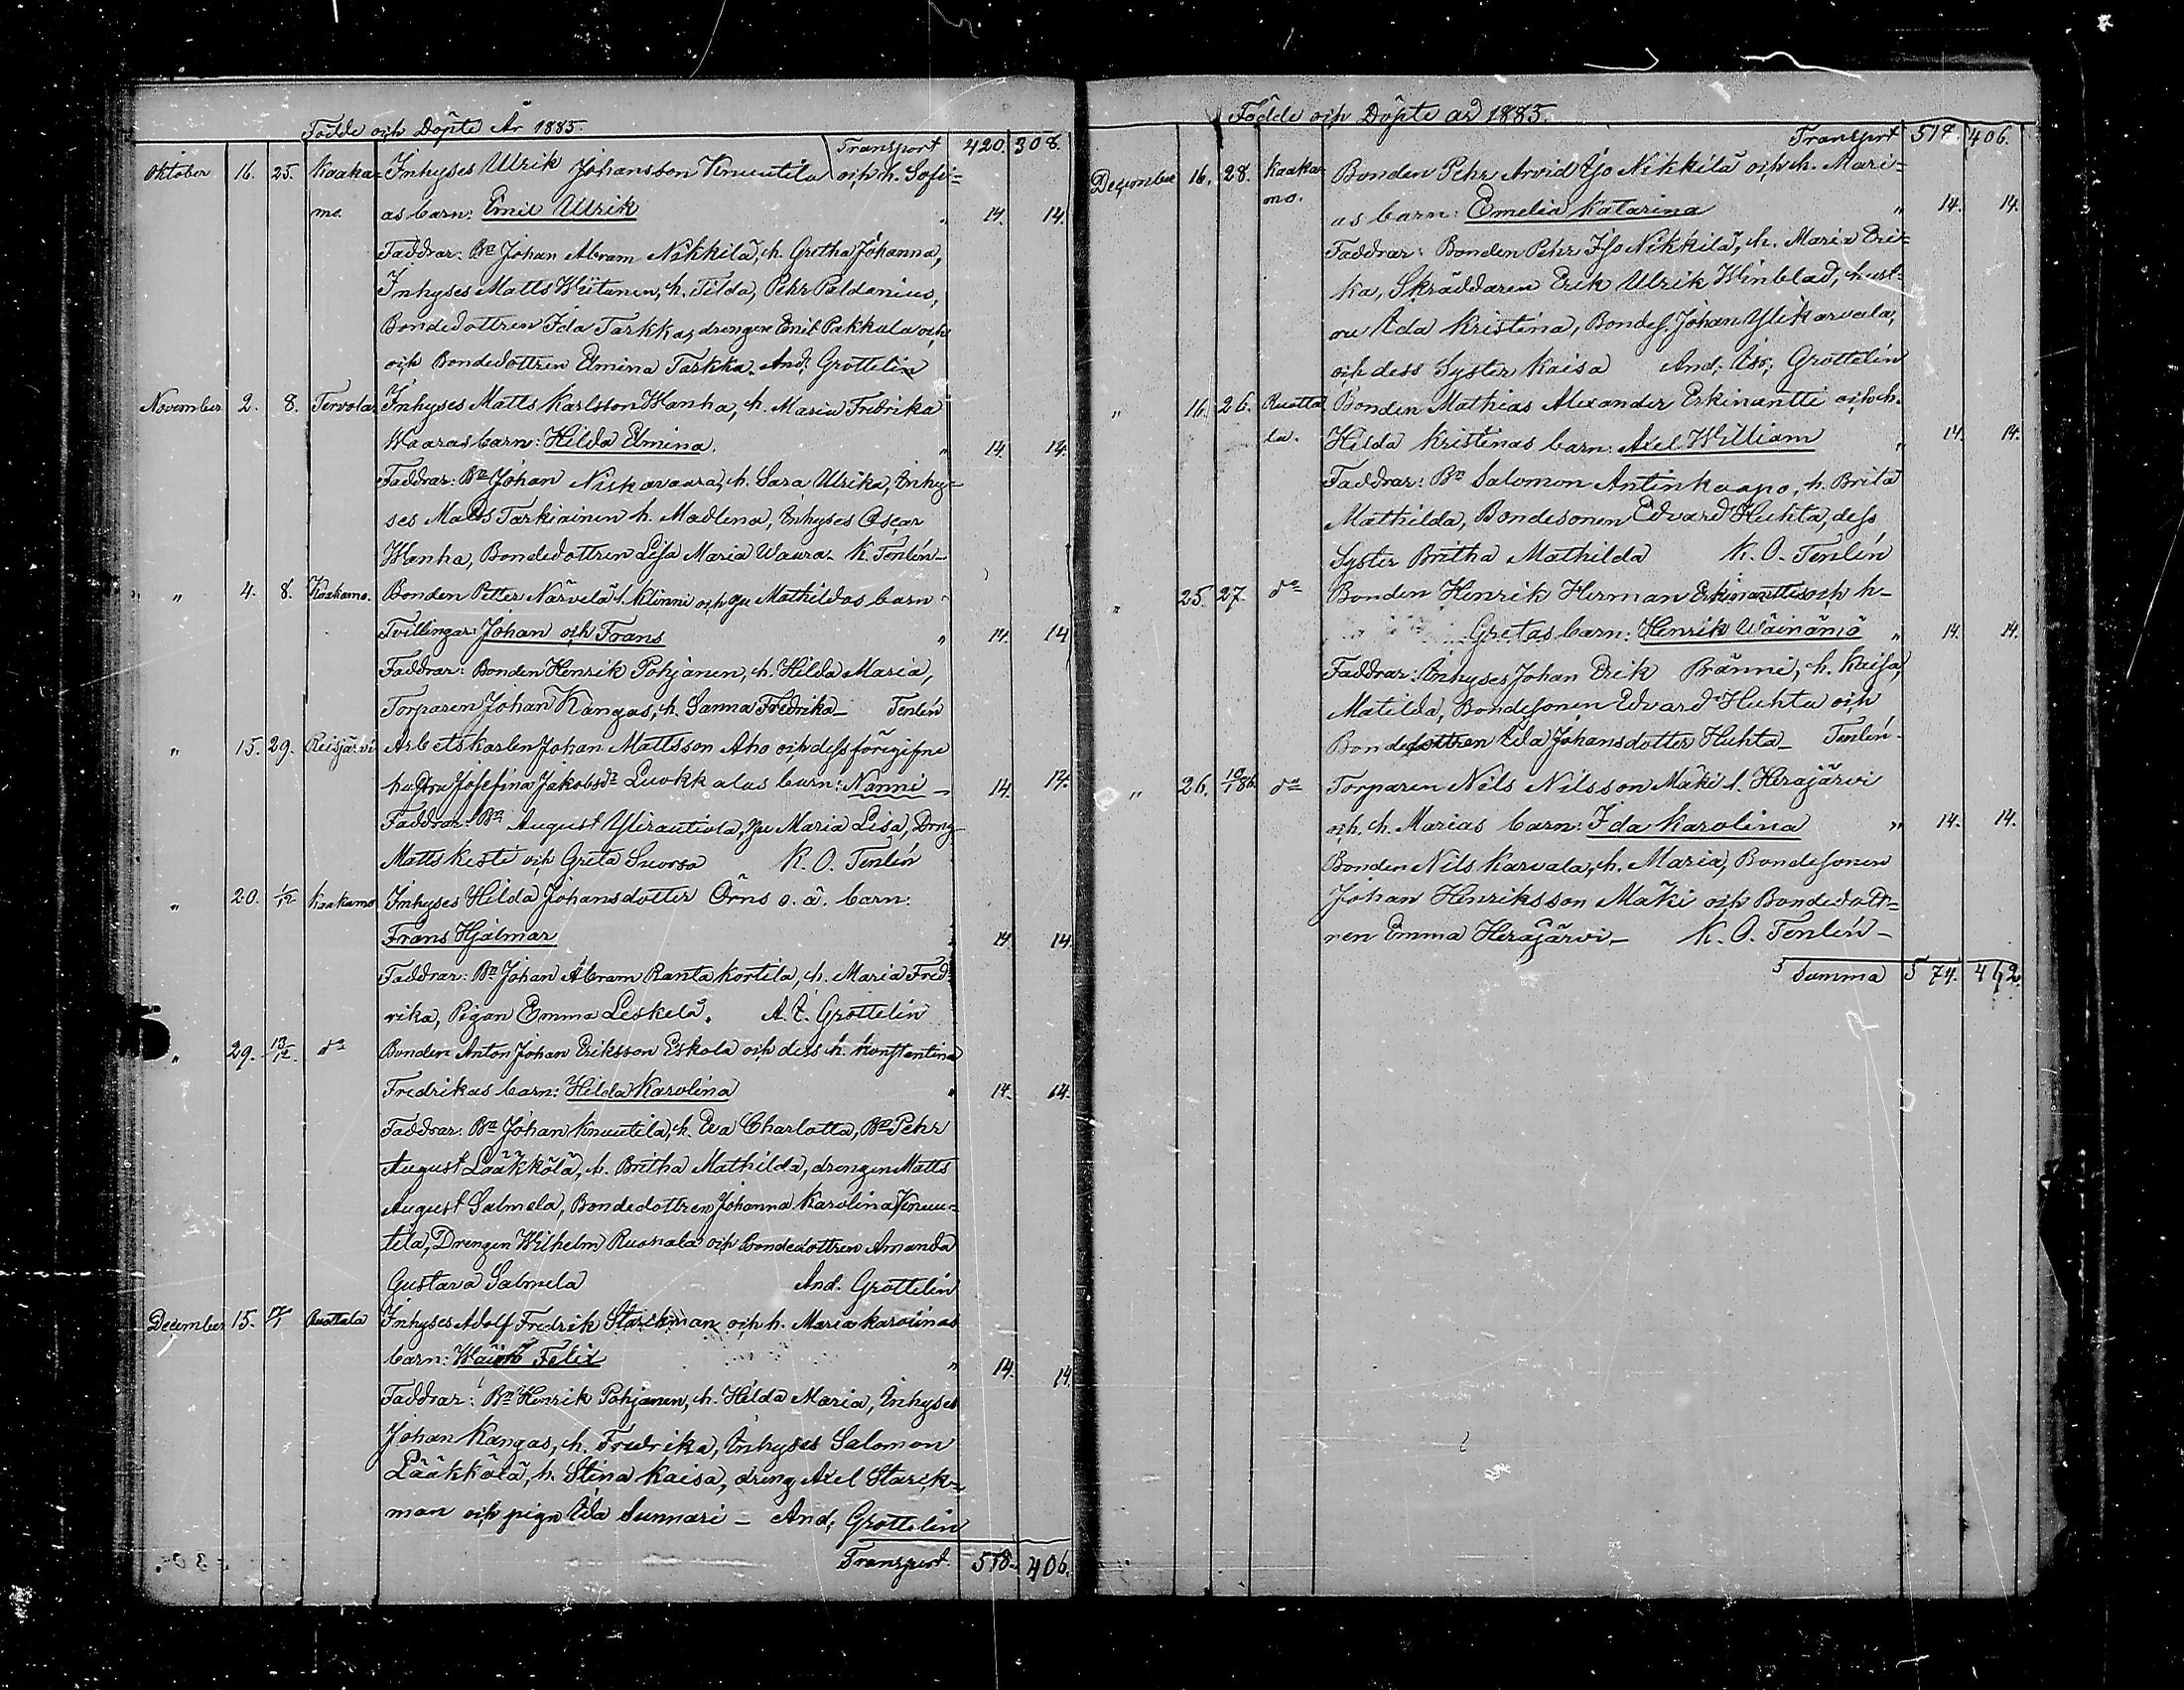 Födde och Döpte År 1885.
Transport 420. 308.
Oktober 16. 25. Kaaka- Inhyses Ulrik Johansson Knuutila och h. Sofi-
mo. as barn: Emil Ulrik " 14. 14.
Faddrar: Bn Johan Abram Nikkilä, h. Gretha Johanna,
Inhyses Matts Wiitanen, h. Tilda, Pehr Paldanius,
Bondedottren Ida Tarkka, drengen Emil Pakkala och
och Bondedottren Elmina Tarkka. And. Grottelin
November 2. 8. Tervola Inhyses Matts Karlsson Wanha, h. Maria Fredrika
Waaras barn: Hilda Elmina. " 14. 14.
Faddrar: Bn Johan Niskavaara, h. Sara Ulrika, Inhy-
ses Matts Tarkiainen h. Madlena, Inhyses Oscar
Wanha, Bondedottren Lisa Maria Waara. K. Tenlén-
" 4. 8. Kaakamo. Bonden Petter Närvelä l. Klinni och gu Mathildas barn
Tvillingar: Johan och Frans " 14. 14
Faddrar: Bonden Henrik Pohjanen, h. Hilda Maria,
Torparen Johan Kangas, h. Sanna Fredrika_ Tenlén
" 15. 29. Reisjärvi Arbetskarlen Johan Mattsson Aho och dess föregifne
hustru Josefina Jakobsdr Luokkalas barn: Nanni - 14. 14.
Faddrar: Bn August Ylirautiola, gu Maria Lisa, Dreng
Matts Kesti och Greta Suorsa K. O. Tenlén
" 20. 1/12 Kaakamo Inhyses Hilda Johansdotter Örns o. ä. barn:
Frans Hjalmar 14. 14.
Faddrar: Bn Johan Abram Rantakortila, h. Maria Fred-
rika, Pigan Emma Leskelä. A. I. Grottelin
" 29. 13/12 do Bonden Anton Johan Eriksson Eskola och dess h. Konstantina
Fredrikas barn: Hilda Karolina " 14. 14.
Faddrar: Bn Johan Knuutila, h. Eva Charlotta, Bn Pehr
August Lääkkölä, h. Britha Mathilda, drengen Matts
August Salmela, Bondedottren Johanna Karolina Knuu-
tila, Drengen Wilhelm Ruonala och Bondedottren Amanda
Gustava Salmela And. Grottelin
December 15. Ruottala Inhyses Adolf Fredrik Starckman och h. Maria Karolinas
barn: Wäinö Felix " 14. 14.
Faddrar: Bn Henrik Pohjanen, h. Hilda Maria, Inhyses
Johan Kangas, h. Fredrika, Inhyses Salomon
Lääkkölä, h. Stina Kaisa, dreng Axel Starck-
man och pign Ida Sunnari _ And. Grottelin
Transport 518. 406.
Födde och Döpte år 1885.
Transport 518. 406.
December 16. 28. Kaaka- Bonden Pehr Arvid Iso Nikkilä och h. Mari-
mo. as barn: Emelia Katarina " 14. 14.
Faddrar: Bonden Pehr Iso Nikkilä, h. Maria Eri-
ka, Skräddaren Erik Ulrik Winblad, hust-
ru Ida Kristina, Bondes. Johan Ylikarvala,
och dess Syster Kaisa And. Iso; Grottelin
" 16. 26. Ruotta- Bonden Mathias Alexander Erkinantti och h.
la. Hilda Kristinas barn: Axel William " 14. 14.
Faddrar: Bn Salomon Antinkaapo, h. Brita
Mathilda, Bondesonen Edvard Huhta, dess
Syster Britha Mathilda K. O. Tenlén
" 25. 27. do Bonden Henrik Herman Erkinanttis och h-
Gretas barn: Henrik Wäinämö " 14. 14.
Faddrar: Inhyses Johan Erik Pränni, h. Kaisa
Matilda, Bondesonen Edvard Huhta och
Bondedottren Ida Johansdotter Huhta_ Tenlén-
" 26. 10/1 86. do Torparen Nils Nilsson Mäki l. Herajärvi
och h. Marias barn: Ida Karolina " 14. 14.
Bonden Nils Karvala, h. Maria, Bondesonen
Johan Henriksson Mäki och Bondedott-
ren Emma Herajärvi_ K. O. Tenlén-
Summa 574. 462.